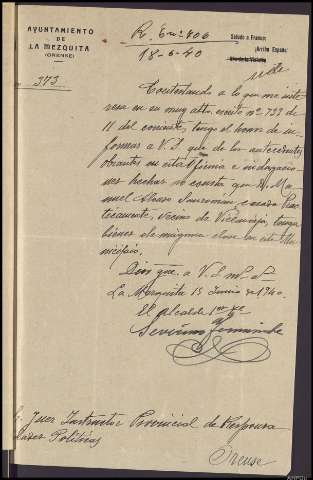 AYUNTAMIENTO
DE
LA MEZQUITA
(ORENSE)
373
R. Em. 406
18-6-40
Saludo a Franco:
¡Arriba España!
Contestando a lo que me inte
resa en su muy atto. escrito nº 733 de
11 del corriente, tengo el honor de in-
formar a V.S. que de los antecedentes
obrantes en esta Alcaldía e indagacio-
nes hechas no consta que D. Ma
nuel Alvaro
vecino de Villavieja, tenga
bienes de ninguna clase en este Mu
nicipio.
Dios gue. a V.S. ms. as.
La Mezquita 15 Junio de 1940.
El Alcalde
Severino Fernández
Juez Instructor Provincial de Responsa
Políticas
Orense